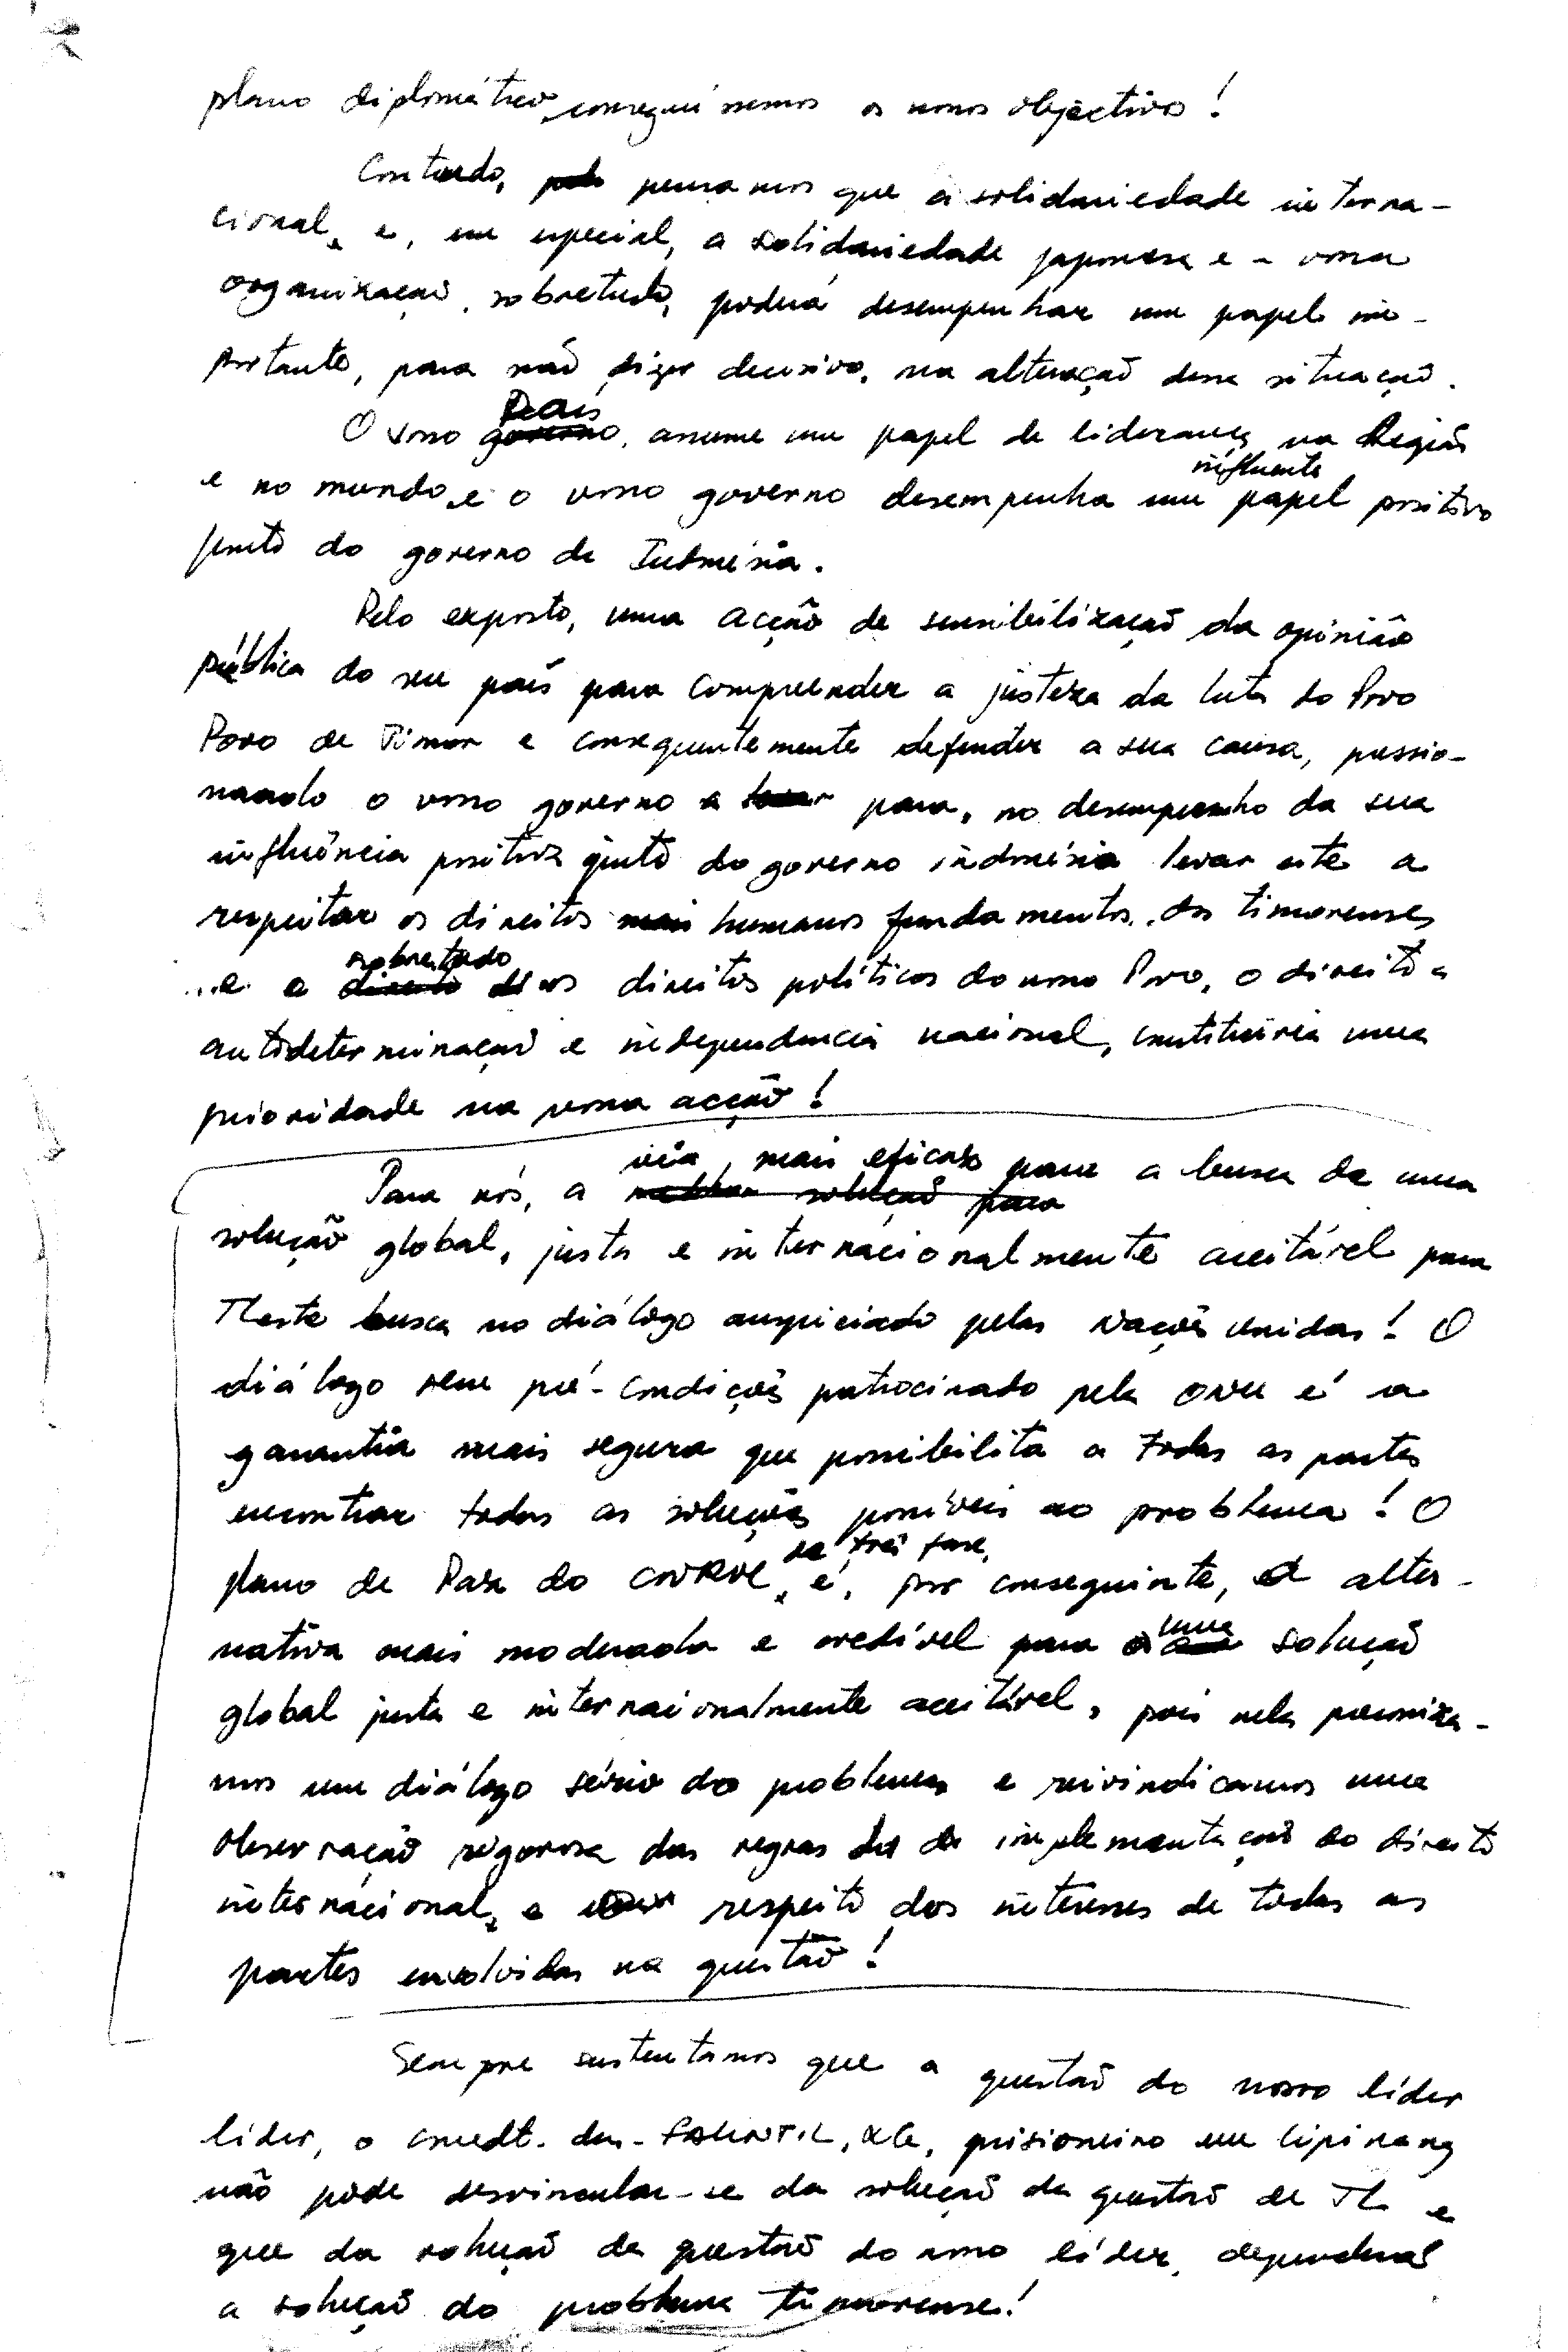 plano diplomático, conseguíssemos os nossos objectivos!
Contudo, pensamos que a solidariedade interna-
cional, e, em especial, a solidariedade japonesa e a vossa
organização, sobretudo, poderá desempenhar um papel im-
portante, para não dizer decisivo, na alteração dessa situação.
O vosso País governo, assume um papel de liderança na Região
e no mundo, e o vosso governo desempenha um influente papel positivo
junto do governo da Indonésia.
Pelo exposto, uma acção de sensibilização da opinião
pública do seu país para compreender a justeza da luta do Povo
Povo de Timor e consequentemente defender a sua causa, pressio-
nando o vosso governo a levar para, no desempenho da sua
influência positiva junto do governo indonésio levar este a
respeitar os direitos mais humanos fundamentos dos timorenses
e e sobretudo direito os direitos políticos do nosso Povo, o direito a
autodeterminação e independência nacional, constituiria uma
prioridade na vossa acção!
Para nós, a via, mais eficaz melhor solução para para a busca de uma
solução global, justa e internacionalmente aceitável para
TLeste busca no diálogo auspiciado pelas Nações Unidas! O
diálogo sem pré-condições patrocinado pela ONU é a
garantia mais segura que possibilita a todas as partes
encontrar todas as soluções possíveis ao problema! O
plano de Paz do CNRM, de três fase, é, por conseguinte, a alter-
nativa mais moderada e credível para uma solução
global justa e internacionalmente aceitável, pois nela preconiza-
mos um diálogo sério do problema e reivindicamos uma
observação rigorosa das regras da de implementação do direito
internacional, e respeito dos interesses de todas as
partes envolvidas na questão!
Sempre sustentamos que a questão do nosso líder
líder, o cmdt. das FALINTIL, XG, prisioneiro em Cipinang
não pode desvincular-se da solução da questão de TL e
que da solução da questão do nosso líder, dependerá
a solução do problema timorense!